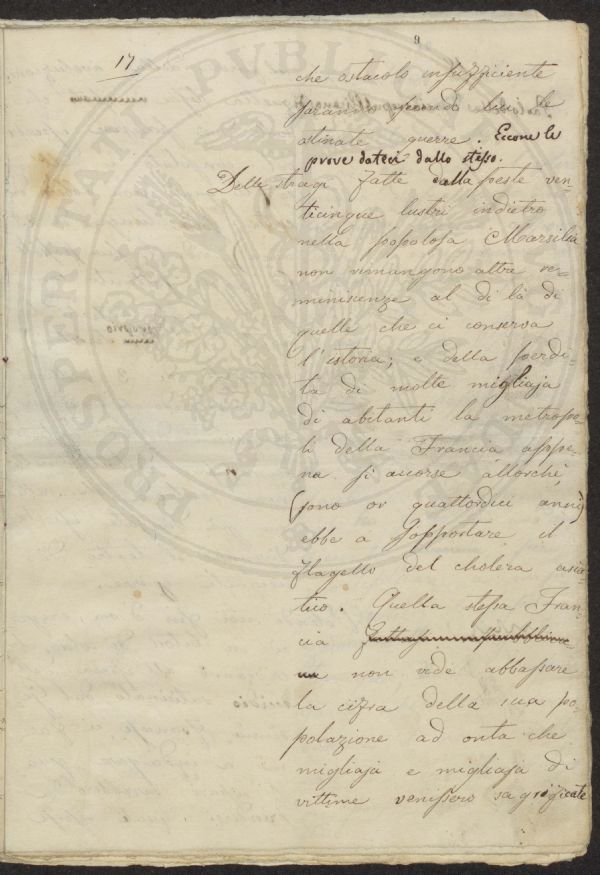 9
17
che ostacolo insufficiente
saranno secondo lui le
ostinate guerre. Eccone le
prove dateci dallo stesso.
Delle stragi fatte dalla peste ven-
ticinque lustri indietro
nella popolosa Marsilia
non rimangono altre re-
miniscenze al di là di
quelle che ci conserva
l'istoria; e della perdi-
ta di molte migliaja
di abitanti la metropo-
li della Francia appe-
na si accorse allorchè,
(sono or quattordici anni)
ebbe a sopportare il
flagello del cholera asia-
tico. Quella stessa Fran-
cia
non vide abbassare
la cifra della sua po-
polazione ad onta che
migliaja e migliaja di
vittime venissero sagrificate
proprio
PROSPERITATI PVBLICAE